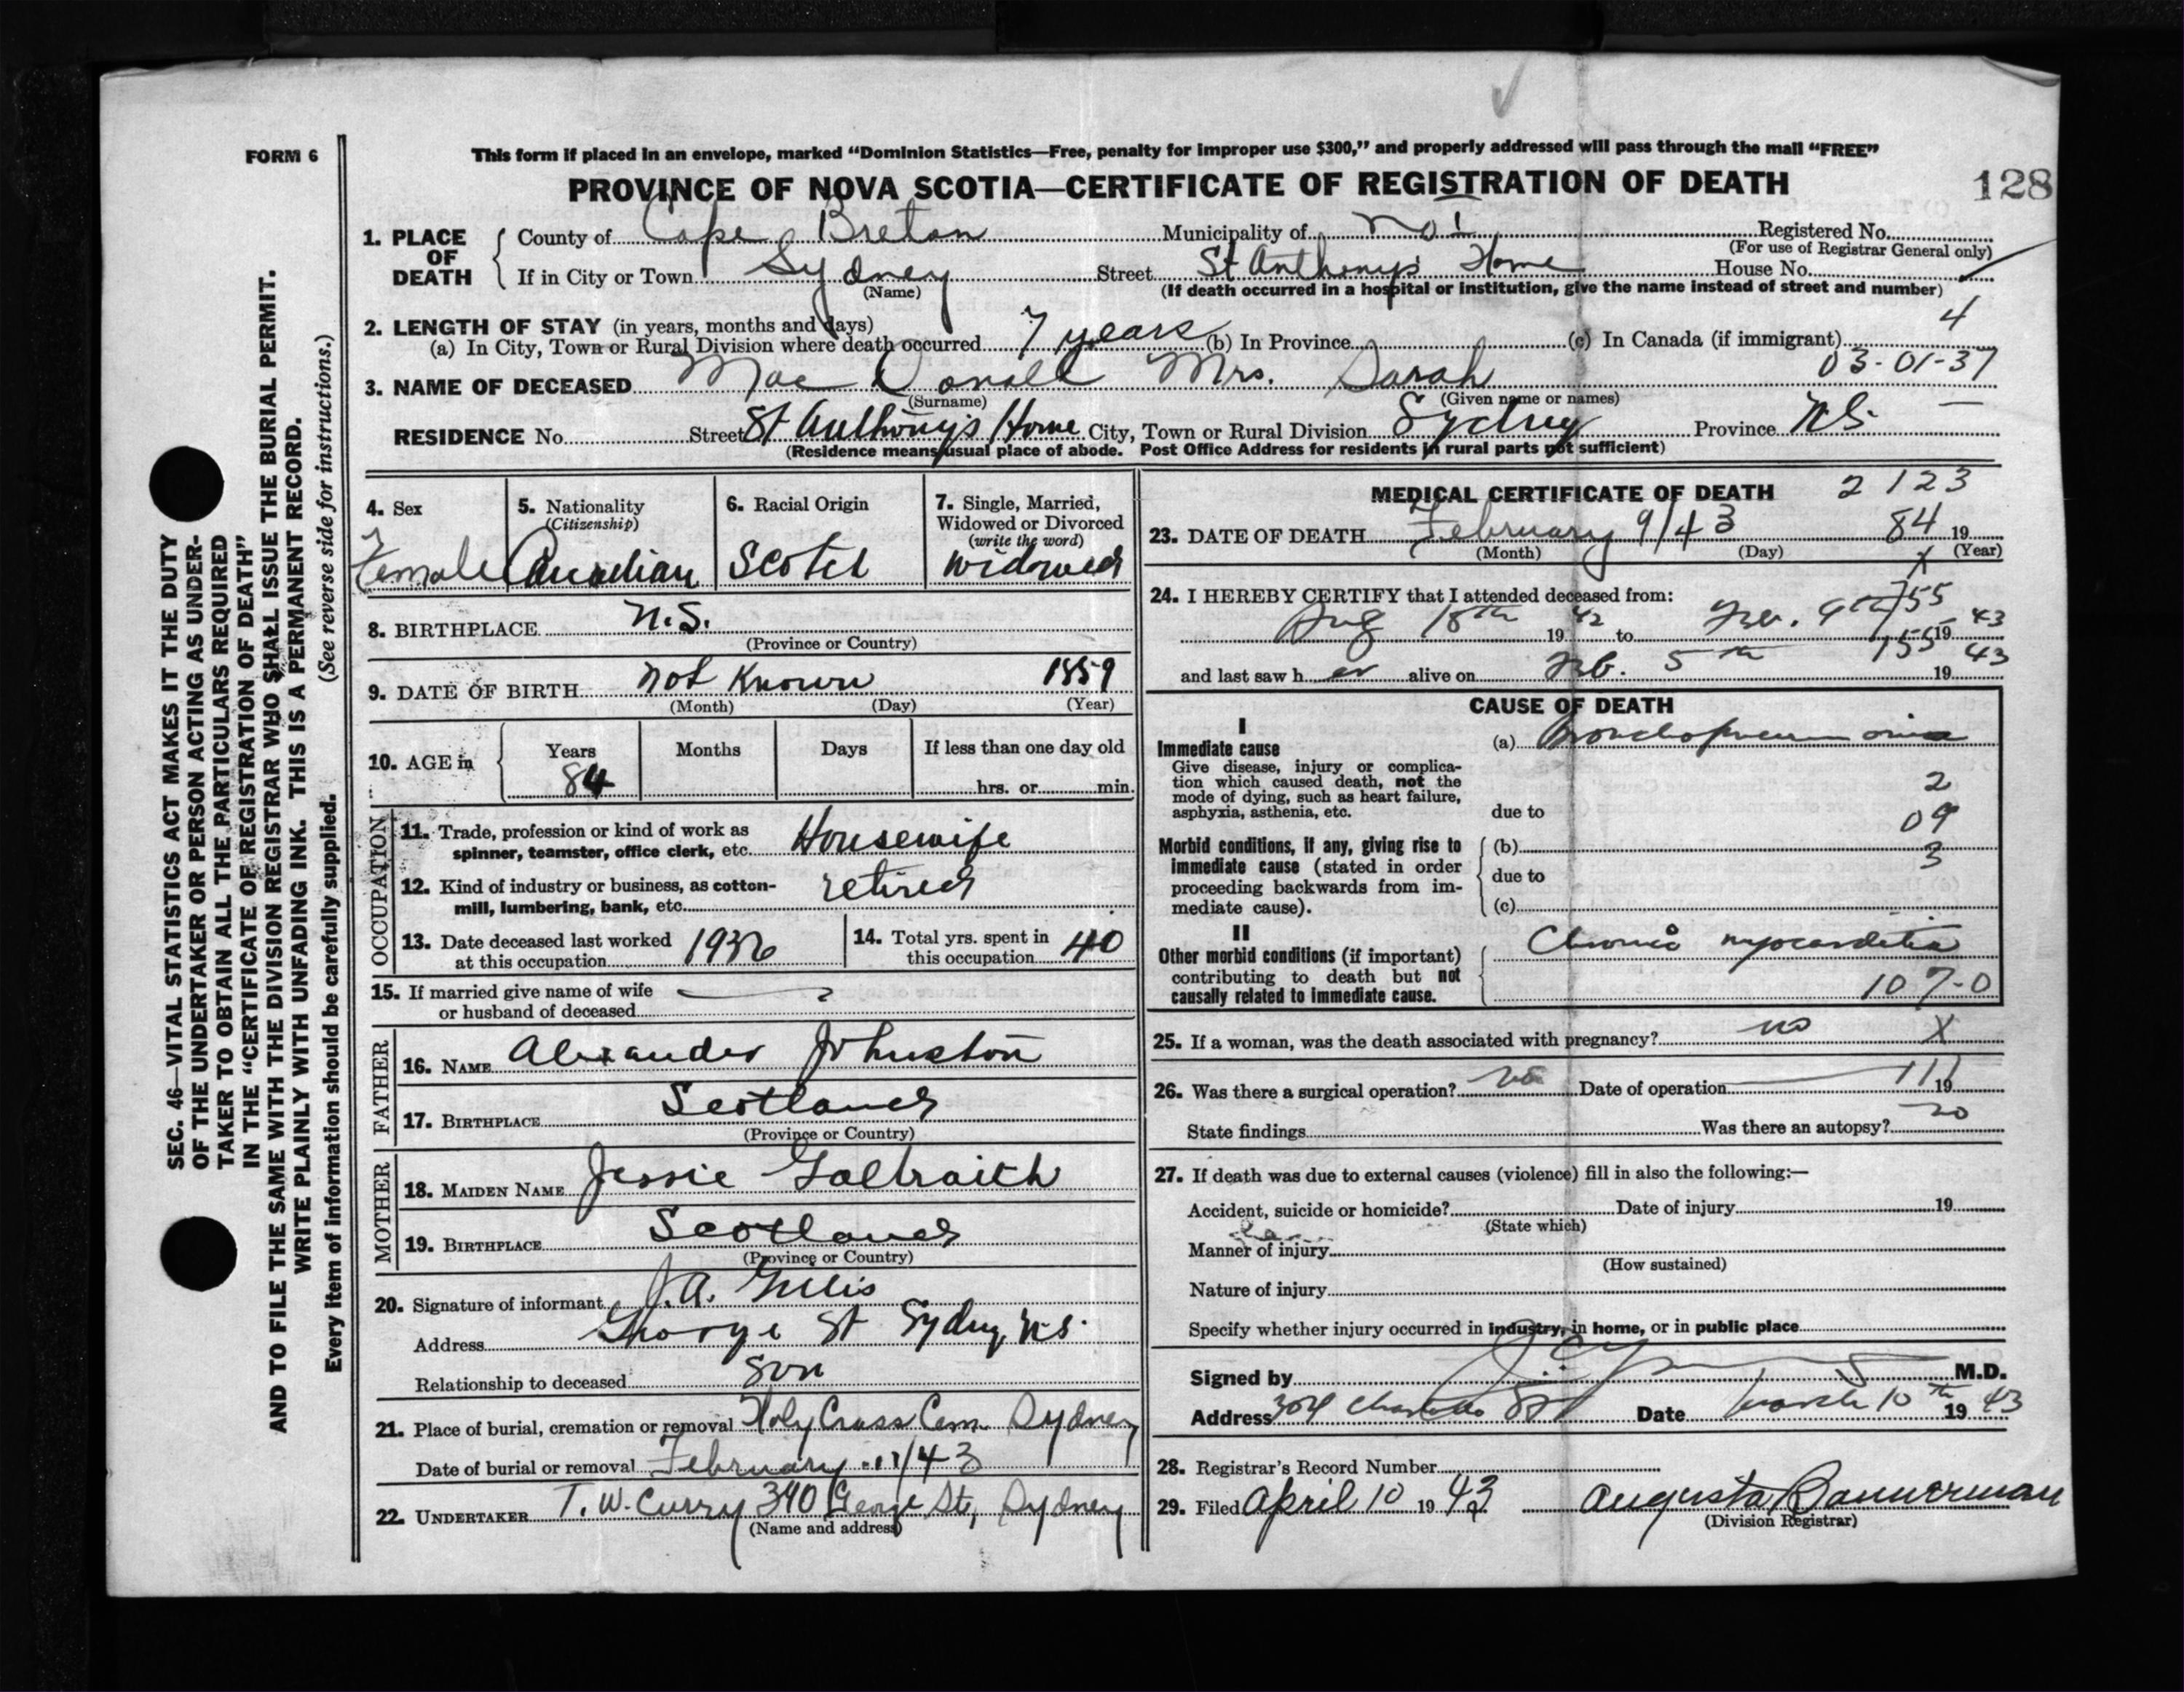 FORM 6
This form if placed in an envelope, marked “Dominion Statistics—Free, penalty for improper use $300,” and properly addressed will pass through the mail “FREE”
PROVINCE OF NOVA SCOTIA—CERTIFICATE OF REGISTRATION OF DEATH
128
1. PLACE OF DEATH County of Cape Breton Municipality of No 1 Registered No.
(For use of Registrar General only)
If in City or Town Sydney Street St Anthony's Home House No.
(Name) (If death occurred in a hospital or institution, give the name instead of street and number)
4
2. LENGTH OF STAY (in years, months and days)
(a) In City, Town or Rural Division where death occurred 7 years (b) In Province (c) In Canada (if immigrant)
03-01-37
3. NAME OF DECEASED Mac Donald Mrs. Sarah
(Surname) (Given name or names)
RESIDENCE No. Street St Anthony's Home City, Town or Rural Division Sydney Province N.S.
(Residence means usual place of abode. Post Office Address for residents in rural parts not sufficient)
4. Sex 5. Nationality (Citizenship) 6. Racial Origin 7. Single, Married, Widowed or Divorced (write the word)
Female Canadian Scotch Widowed
8. BIRTHPLACE N.S.
(Province or Country)
9. DATE OF BIRTH Not Known 1859
(Month) (Day) (Year)
10. AGE in Years Months Days If less than one day old
84 hrs. or min.
OCCUPATION
11. Trade, profession or kind of work as
spinner, teamster, office clerk, etc. Housewife
12. Kind of industry or business, as cotton-
mill, lumbering, bank, etc. retired
13. Date deceased last worked
at this occupation 1936
14. Total yrs. spent in
this occupation 40
15. If married give name of wife
or husband of deceased
FATHER
16. NAME Alexander Johnston
17. BIRTHPLACE Scotland
(Province or Country)
MOTHER
18. MAIDEN NAME Jessie Galbraith
19. BIRTHPLACE Scotland
(Province or Country)
20. Signature of informant J.A. Gillis
Address George St Sydney, N.S.
Relationship to deceased Son
21. Place of burial, cremation or removal Holy Cross Cem Sydney
Date of burial or removal February 11/43
22. UNDERTAKER T. W. Curry 390 George St, Sydney
(Name and address)
MEDICAL CERTIFICATE OF DEATH 2123
23. DATE OF DEATH February 9/43 84 19
(Month) (Day) (Year)
X
24. I HEREBY CERTIFY that I attended deceased from:
755
Aug 18th 1942 to Feb. 9th 1943
155
and last saw her alive on Feb. 5th 1943
CAUSE OF DEATH
I
Immediate cause
Give disease, injury or complica-
tion which caused death, not the
mode of dying, such as heart failure,
asphyxia, asthenia, etc.
(a) Bronchopneumonia
2
due to
09
Morbid conditions, if any, giving rise to
immediate cause (stated in order
proceeding backwards from im-
mediate cause).
(b)
3
due to
(c)
II
Other morbid conditions (if important)
contributing to death but not
causally related to immediate cause.
Chronic myocarditis
107-0
25. If a woman, was the death associated with pregnancy? no X
26. Was there a surgical operation? no Date of operation 111 19
State findings Was there an autopsy? no
27. If death was due to external causes (violence) fill in also the following:—
Accident, suicide or homicide? Date of injury 19
(State which)
Manner of injury
(How sustained)
Nature of injury
Specify whether injury occurred in industry, in home, or in public place
Signed by M.D.
Address 304 Charlotte St Date March 10th 1943
28. Registrar's Record Number
29. Filed April 10 1943 Augusta Bannerman
(Division Registrar)
SEC. 46—VITAL STATISTICS ACT MAKES IT THE DUTY
OF THE UNDERTAKER OR PERSON ACTING AS UNDER-
TAKER TO OBTAIN ALL THE PARTICULARS REQUIRED
IN THE “CERTIFICATE OF REGISTRATION OF DEATH”
AND TO FILE THE SAME WITH THE DIVISION REGISTRAR WHO SHALL ISSUE THE BURIAL PERMIT.
WRITE PLAINLY WITH UNFADING INK. THIS IS A PERMANENT RECORD.
Every item of information should be carefully supplied. (See reverse side for instructions.)